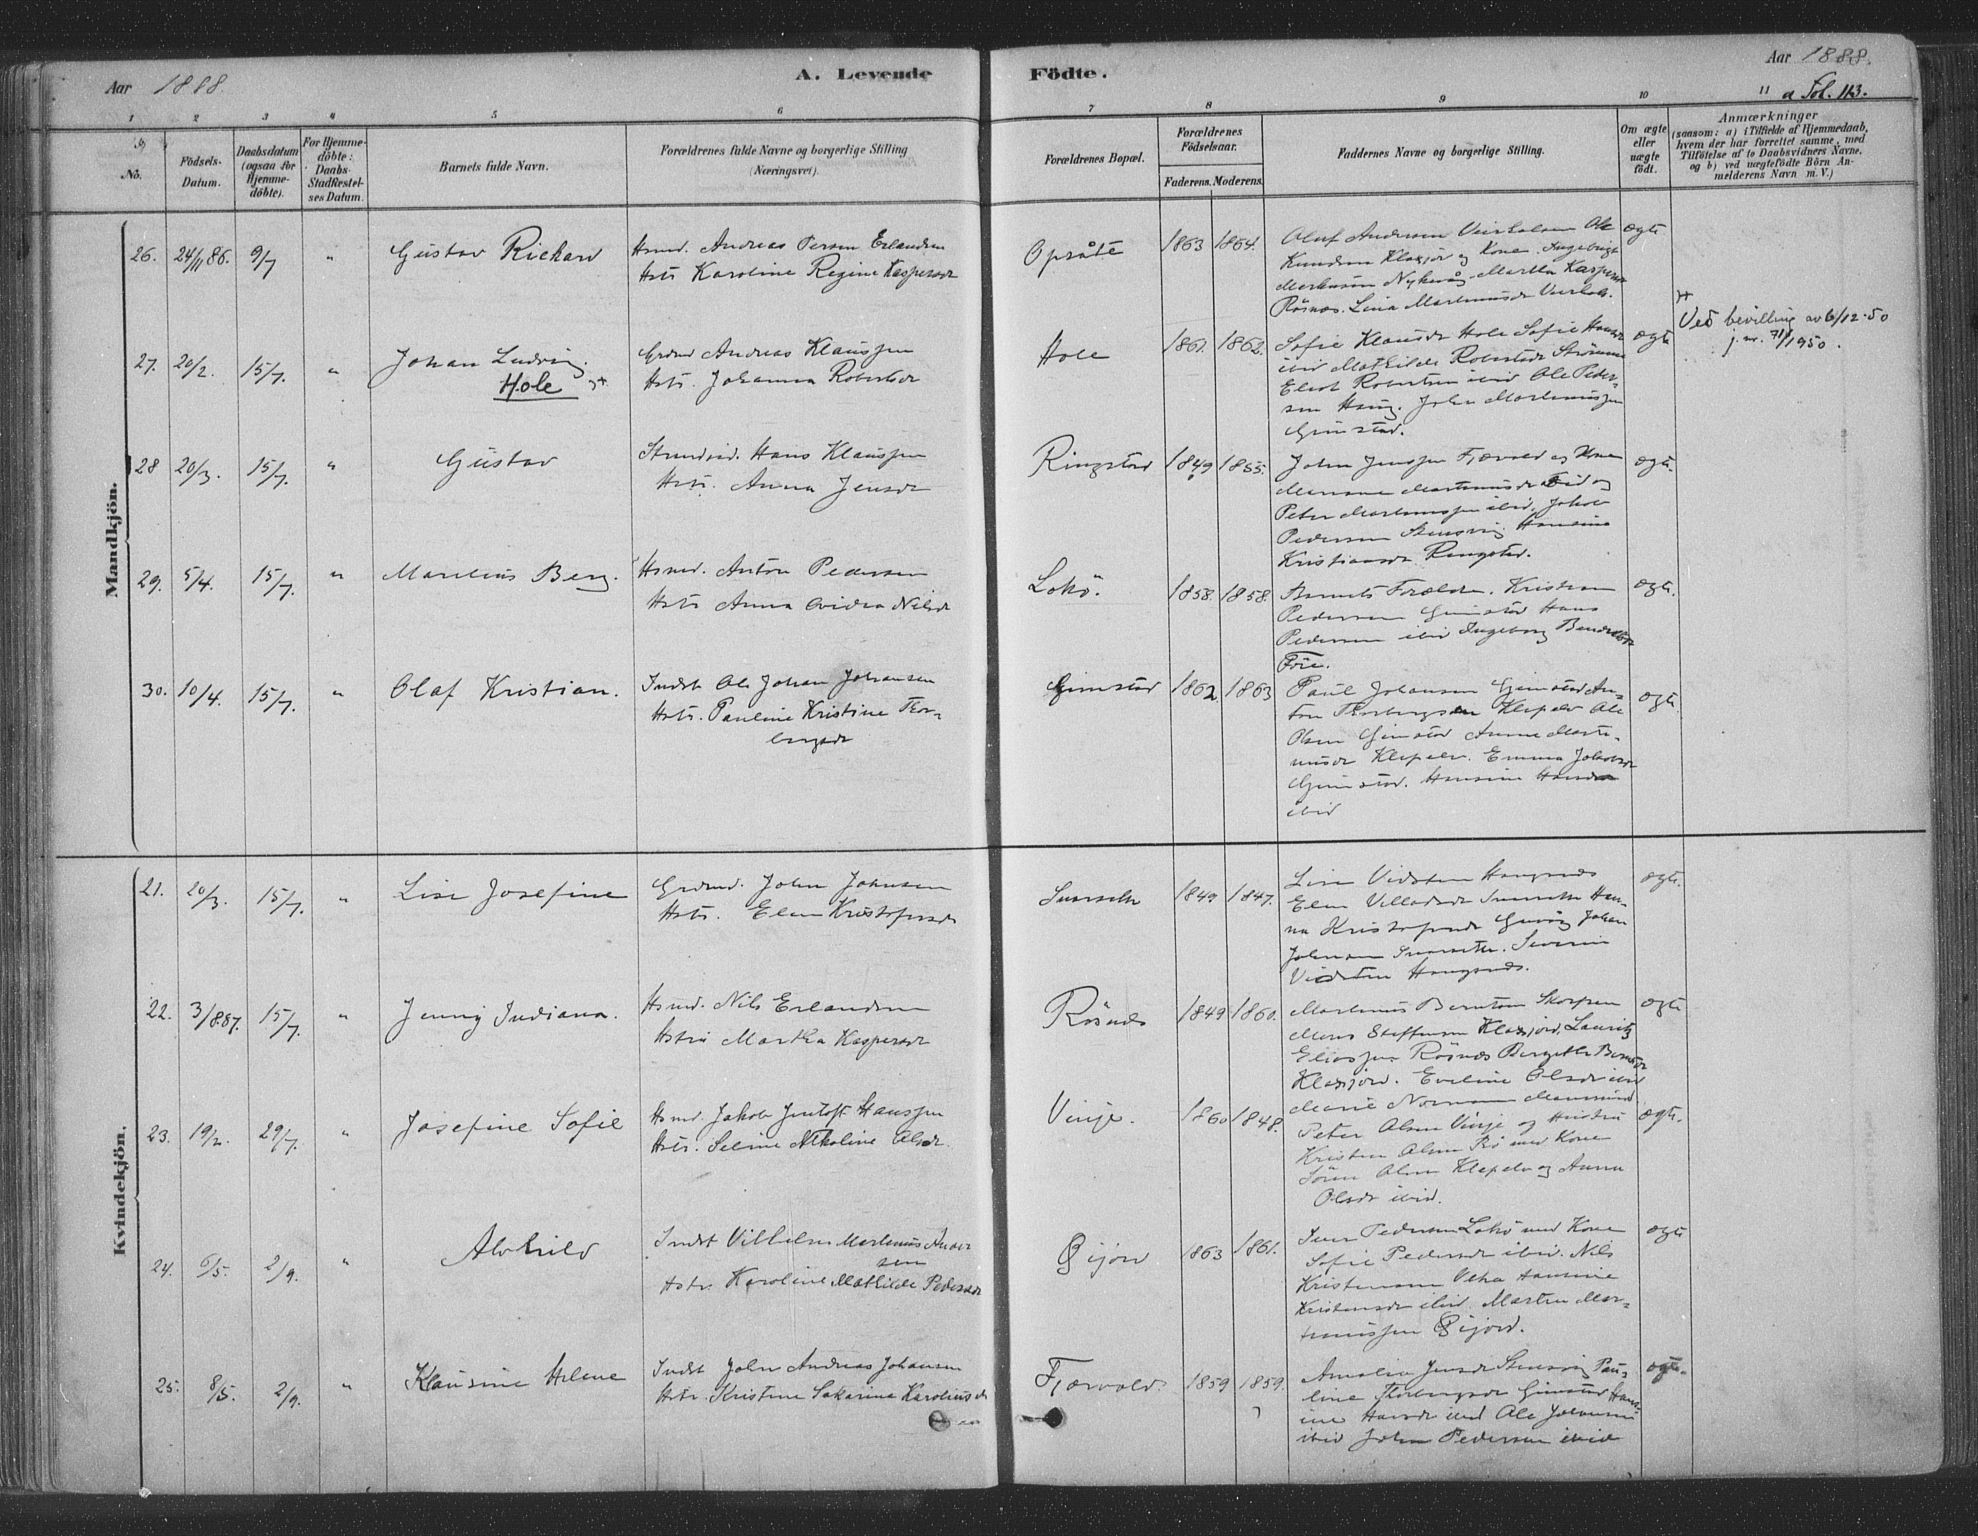 Aar 1888.
A. Levende
Födte.
Aar 1888.
a Fol. 113.
1 2 3 4 5 6 7 8 9 10 11
No.
Födsels-Datum.
Daabsdatum (ogsaa for Hjemmedöbte).
For Hjemmedöbte: Daabs-Stadfestelses Datum.
Barnets fulde Navn.
Forældrenes fulde Navne og borgerlige Stilling (Næringsvei).
Forældrenes Bopæl.
Forældrenes Födselsaar.
Faderens. Moderens.
Faddernes Navne og borgerlige Stilling.
Om ægte eller uægte födt.
Anmærkninger
(saasom: a) i Tilfælde af Hjemmedaab, hvem der har forrettet samme, med Tilföielse af to Daabsvidners Navne, og b) ved uægtefödte Börn Anmelderens Navn m. V.)
Mandkjön.
26. 24/11 86. 9/7 " Gustav Rickard
Hsmd. Andreas Persen Erlandsen
Hstr. Karoline Regine Kaspersdr
Opsåte 1863 1864.
Oluf Andersen Ole
Knudsen Klaxjor og Kone. Ingebrigt
Markussen Nyksåg. Martha Kaspersdr
Rösnes. Lina Martinusdr
ægte
27. 20/2. 15/7. " Johan Ludvig
Hole
Grdmd Andreas Klaussen
Hstr. Johanna Robertsdr
Hole 1861. 1862.
Sofie Klausdr Hole Sofie Hansdr
ibid Mathilde Robertsdr Strömme
Eliot Robertsen ibid Ole Peder-
sen Haug. John Martinussen
Gimstad.
ægte
Ved bevilling av 6/12-50
j.nr. 71/1950.
28 20/3. 15/7. " Gustav
Strandsid. Hans Klaussen
Hstr. Anna Jensdr
Ringstad 1849 1855.
John Jenssen Fjærvold og Kone
Martinusdr Eid og
Peter Martinussen ibid, Jakob
Pedersen Steinsvig Hansine
Kristiansdr Ringstad.
ægte.
29. 5/4. 15/7. " Marelius Berg.
Hsmd. Anton Pedersen
Hstr Anna Ovidia Nilsdr
Lokö. 1858. 1858.
Barnets Forældre. Kristian
Pedersen Gimstad Hans
Pedersen ibid Ingeborg
Föie.
ægte.
30. 10/4. 15/7. " Olaf Kristian.
Indst Ole Johan Johansen
Hstr. Pauline Kristine Thor-
bergsdr
Gimstad 1862 1863
Paul Johansen Gimstad An-
ton Thorbergsen Klepelv Ole
Olsen Gimstad Anne Marti-
nusdr Klepelv. Emma Jakobsdr
Gimstad. Hansine Hansdr
ibid
ægte.
Kvindekjön.
21. 20/3. 15/7. " Lise Josefine
Grdmd. John Johnsen
Hstr. Elen Kristofersdr
1849 1847.
Lise Vidsten Haugsnes
Elen Villadsdr Han-
na Kristofersdr Johan
Johnsen Severin
Vidsten Haugsnes.
ægte.
22. 3/1887. 15/7. " Jenny Indiana.
Hsmd. Nils Erlandsen
Hstru Martha Kaspersdr
Rösnes 1849 1860.
Martinus Berntsen Skorpen
Mons Steffensen Klaxjord. Lauritz
Eliassen Rösnes Bergithe
Klaxjord. Eveline Olsdr ibid
Marie
ægte
23. 19/2. 29/7. " Josefine Sofie
Hsmd. Jakob Jentoft Hanssen
Hstr. Seline Nikoline Olsdr.
Vinje. 1860 1848.
Peter Olsen Vinje og Hustru
Kristen Olsen Bö med Kone
Sören Olsen Klepelv og Anna
Olsdr ibid.
ægte.
24. 6/5. 2/9. " Alvhild
Indst Vilhelm Martinus Ander
sen
Hstr. Karoline Mathilde Pedersdr
Öijord 1863 1861.
Iver Pedersen Lokö med Kone
Sofie Pedersdr ibid. Nils
Kristensen Hansine
Kristensdr ibid. Marten Mar-
tinussen Öijord.
ægte
25. 8/5. 2/9. " Klausine Helene
Indst John Andreas Johansen
Hstr. Kristine Sakarina Karoliusdr
Fjærvold. 1859 1859.
Amalia Jensdr Steinsvig Pau-
line Thorbergsdr Gimstad Hans-
ine Hansdr ibid Ole Johansen
ibid John Pedersen ibid
ægte.